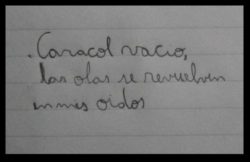 . Caracol vacio,
las olas se revuelven
en mis oidos